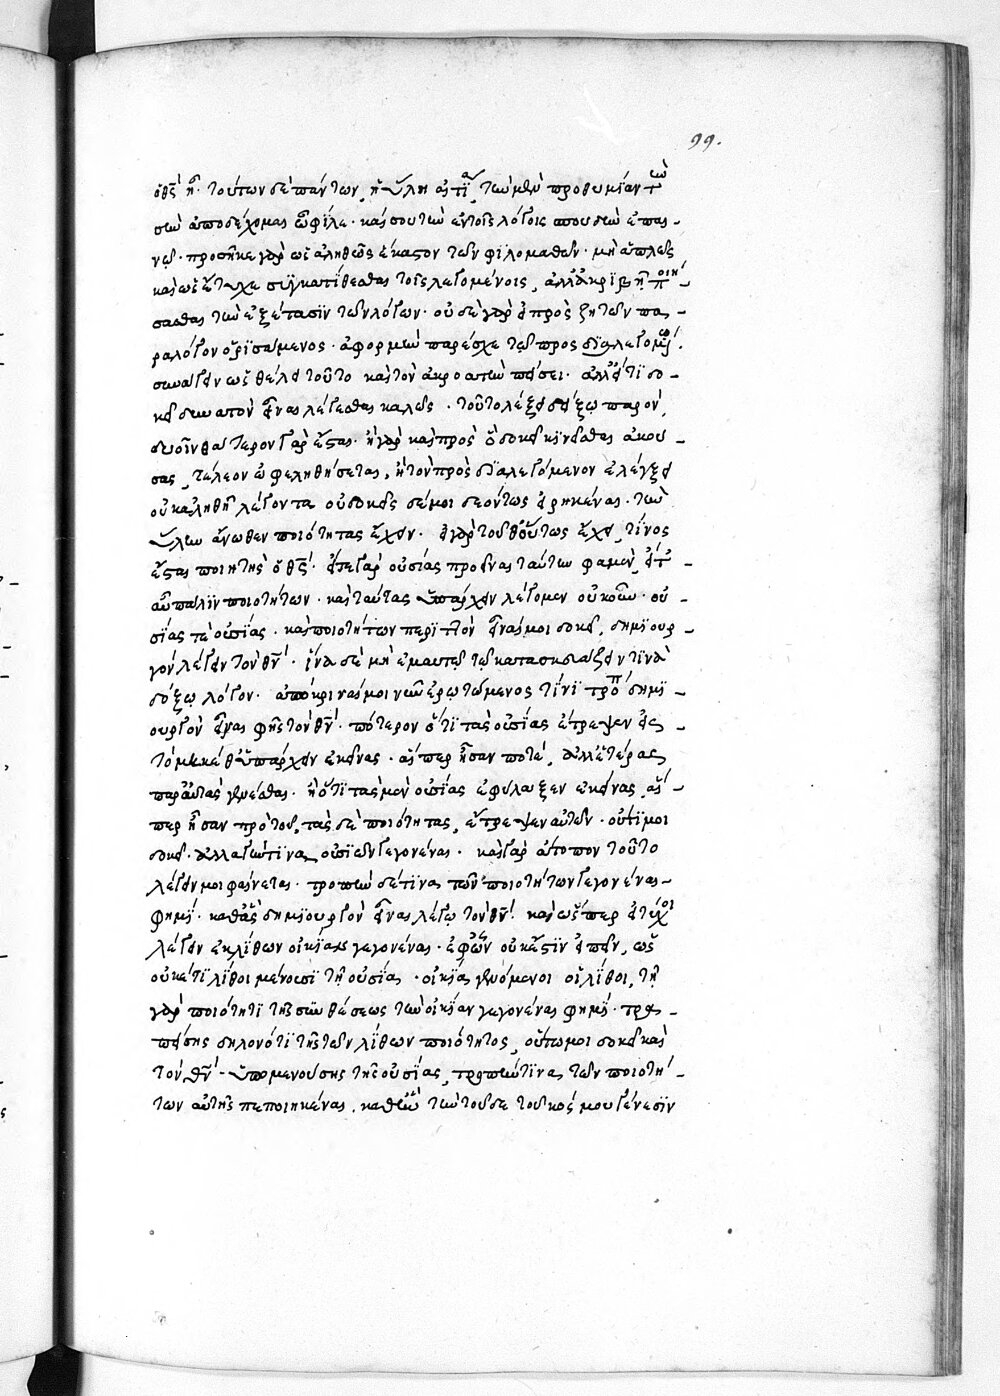 99.
ὁ θς̅ ἦ. τούτων δὲ πάντων, ἡ ὕλη αἰτία. τὴν μὲν προθυμίαν
σου ἀποδέχομαι ὦ φίλε. καὶ σου τὴν ἐν τοῖς λόγοις σπουδὴν ἐπαι-
νῶ. προσῆκε γὰρ ὡς ἀληθῶς ἕκαστον τῶν φιλομαθῶν. μὴ ἁπλῶς
καὶ ὡς ἔτυχε συγκατιθέσθαι τοῖς λεγομένοις, ἀλλ' ἀκριβῆ ποιή-
σασθαι τὴν ἐξέτασιν τῶν λόγων. οὐδὲ γὰρ εἰ πρὸς ζητῶν πα-
ραλόγον ὁρισάμενος. ἀφορμὴν παρέσχε τῷ προσδιαλεγομένῳ.
συνάγειν ὡς θέλει τοῦτο καὶ τὸν ἀκροατὴν πείσει. ἀλλ' εἴ τι δο-
κεῖ ἄτοπον εἶναι λέγεσθαι καλῶς. τοῦτο λέξει δόξῃ παρόν,
δυοῖν θάτερον γὰρ ἔσται. ἢ γὰρ καὶ πρὸς ὃ δοκεῖ κινεῖσθαι ἀκού-
σας, τέλεον ὠφεληθήσεται, ἢ τὸν προσδιαλεγόμενον ἐλέγξει
οὐκ ἀληθῆ λέγοντα οὐ δοκεῖς δέ μοι δεόντως εἰρηκέναι. τὴν
ὕλην ἄνωθεν ποιότητας ἔχειν. εἰ γὰρ τοῦθ' οὕτως ἔχει, τίνος
ἔσται ποιητὴς ὁ θς̅. εἴτε γὰρ οὐσίας προεῖναι ταύτην φαμέν, εἴτ' -
αὖ πάλιν ποιοτήτων. καὶ ταύτας ὑπάρχειν λέγομεν οὐκοῦν. οὐ-
σίας τε οὐσίας. καὶ ποιοτήτων περιττὸν εἶναί μοι δοκεῖ, δημιουρ-
γὸν λέγειν τὸν θν̅. ἵνα δὲ μὴ ἐμαυτῷ κατασκευάζειν τινὰ
δόξω λόγον. ἀπόκριναί μοι νῦν ἐρωτώμενος τίνι τρόπῳ δημι-
ουργὸν εἶναι φῂς τὸν θν̅. πότερον ὅτι τὰς οὐσίας ἔτρεψεν εἰς
τὸ μηκέθ' ὑπάρχειν ἐκείνας. αἵπερ ἦσαν ποτέ, ἀλλ' ἑτέρας
παρ' αὐτὰς γενέσθαι. ἢ ὅτι τὰς μὲν οὐσίας ἐφύλαξεν ἐκείνας, αἵ-
περ ἦσαν πρὸ τοῦ, τὰς δὲ ποιότητας, ἔτρεψεν αὐτῶν. οὔτι μοι
δοκεῖ. ἀλλαγήν τινα, οὐσιῶν γεγονέναι. καὶ γὰρ ἄτοπον τοῦτο
λέγειν μοι φαίνεται. τροπὴν δέ τινα τῶν ποιοτήτων γεγονέναι -
φημί. καθ' ἃς δημιουργὸν εἶναι λέγω τὸν θν̅. καὶ ὥσπερ εἰ τύχοι
λέγειν ἐκ λίθων οἰκίαν γεγονέναι. ἐφ' ὧν οὐκ ἔστιν εἰπεῖν, ὡς
οὐκέτι λίθοι μένουσι τῇ οὐσίᾳ. οἰκία γενόμενοι οἱ λίθοι, τῇ
γὰρ ποιότητι τῆς συνθέσεως τὴν οἰκίαν γεγονέναι φημί. τρα-
πείσης δηλονότι τῆς τῶν λίθων ποιότητος, οὕτω μοι δοκεῖ καὶ
τὸν θν̅ - ὑπομενούσης τῆς οὐσίας, τροπήν τινα τῶν ποιοτή-
των αὐτῆς πεποιηκέναι. καθ' ἣν τὴν τοῦδε τοῦ κόσμου γένεσιν